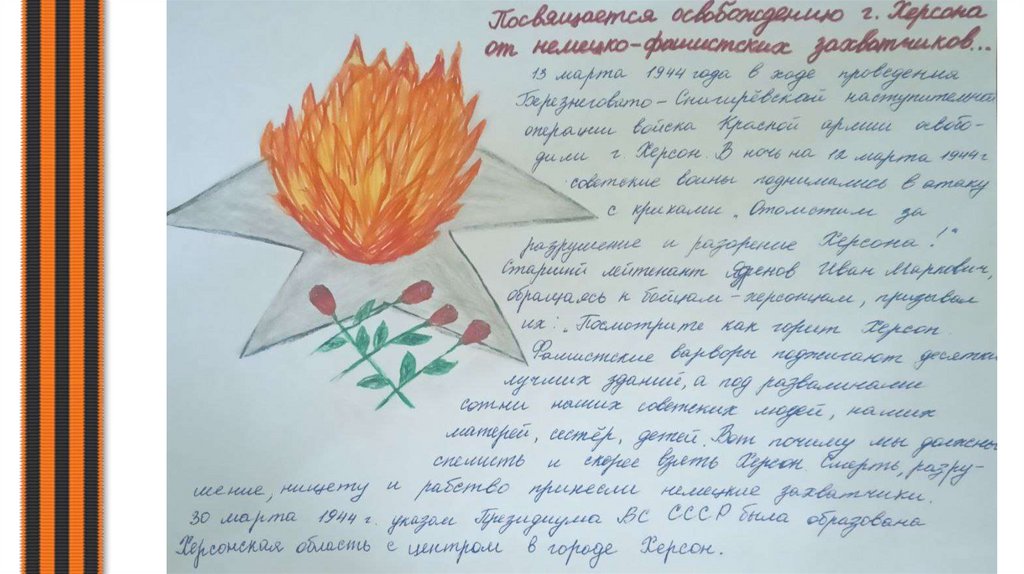 Посвящается освобождению г. Херсона
от немецко-фашистских захватчиков...
13 марта 1944 года в ходе проведения
Березнеговато-Снигирёвской наступительной
операции войска Красной армии освобо-
дили г. Херсон. В ночь на 12 марта 1944 г
советские воины поднимались в атаку
с криками „Отомстим за
разрушение и разорение Херсона!"
Старший лейтенант Иван Маркович,
обращаясь к бойцам-херсонцам, призывал
их: „Посмотрите как горит Херсон.
Фашистские варворы поджигают десятки
лучших зданий, а под развалинами
сотни наших советских людей, наших
матерей, сестёр, детей. Вот почему мы должны
спешить и скорее взять Херсон. Смерть, разру-
шение, нищету и рабство принесли немецкие захватчики.
30 марта 1944 г. указом Президиума ВС СССР была образована
Херсонская область с центром в городе Херсон.